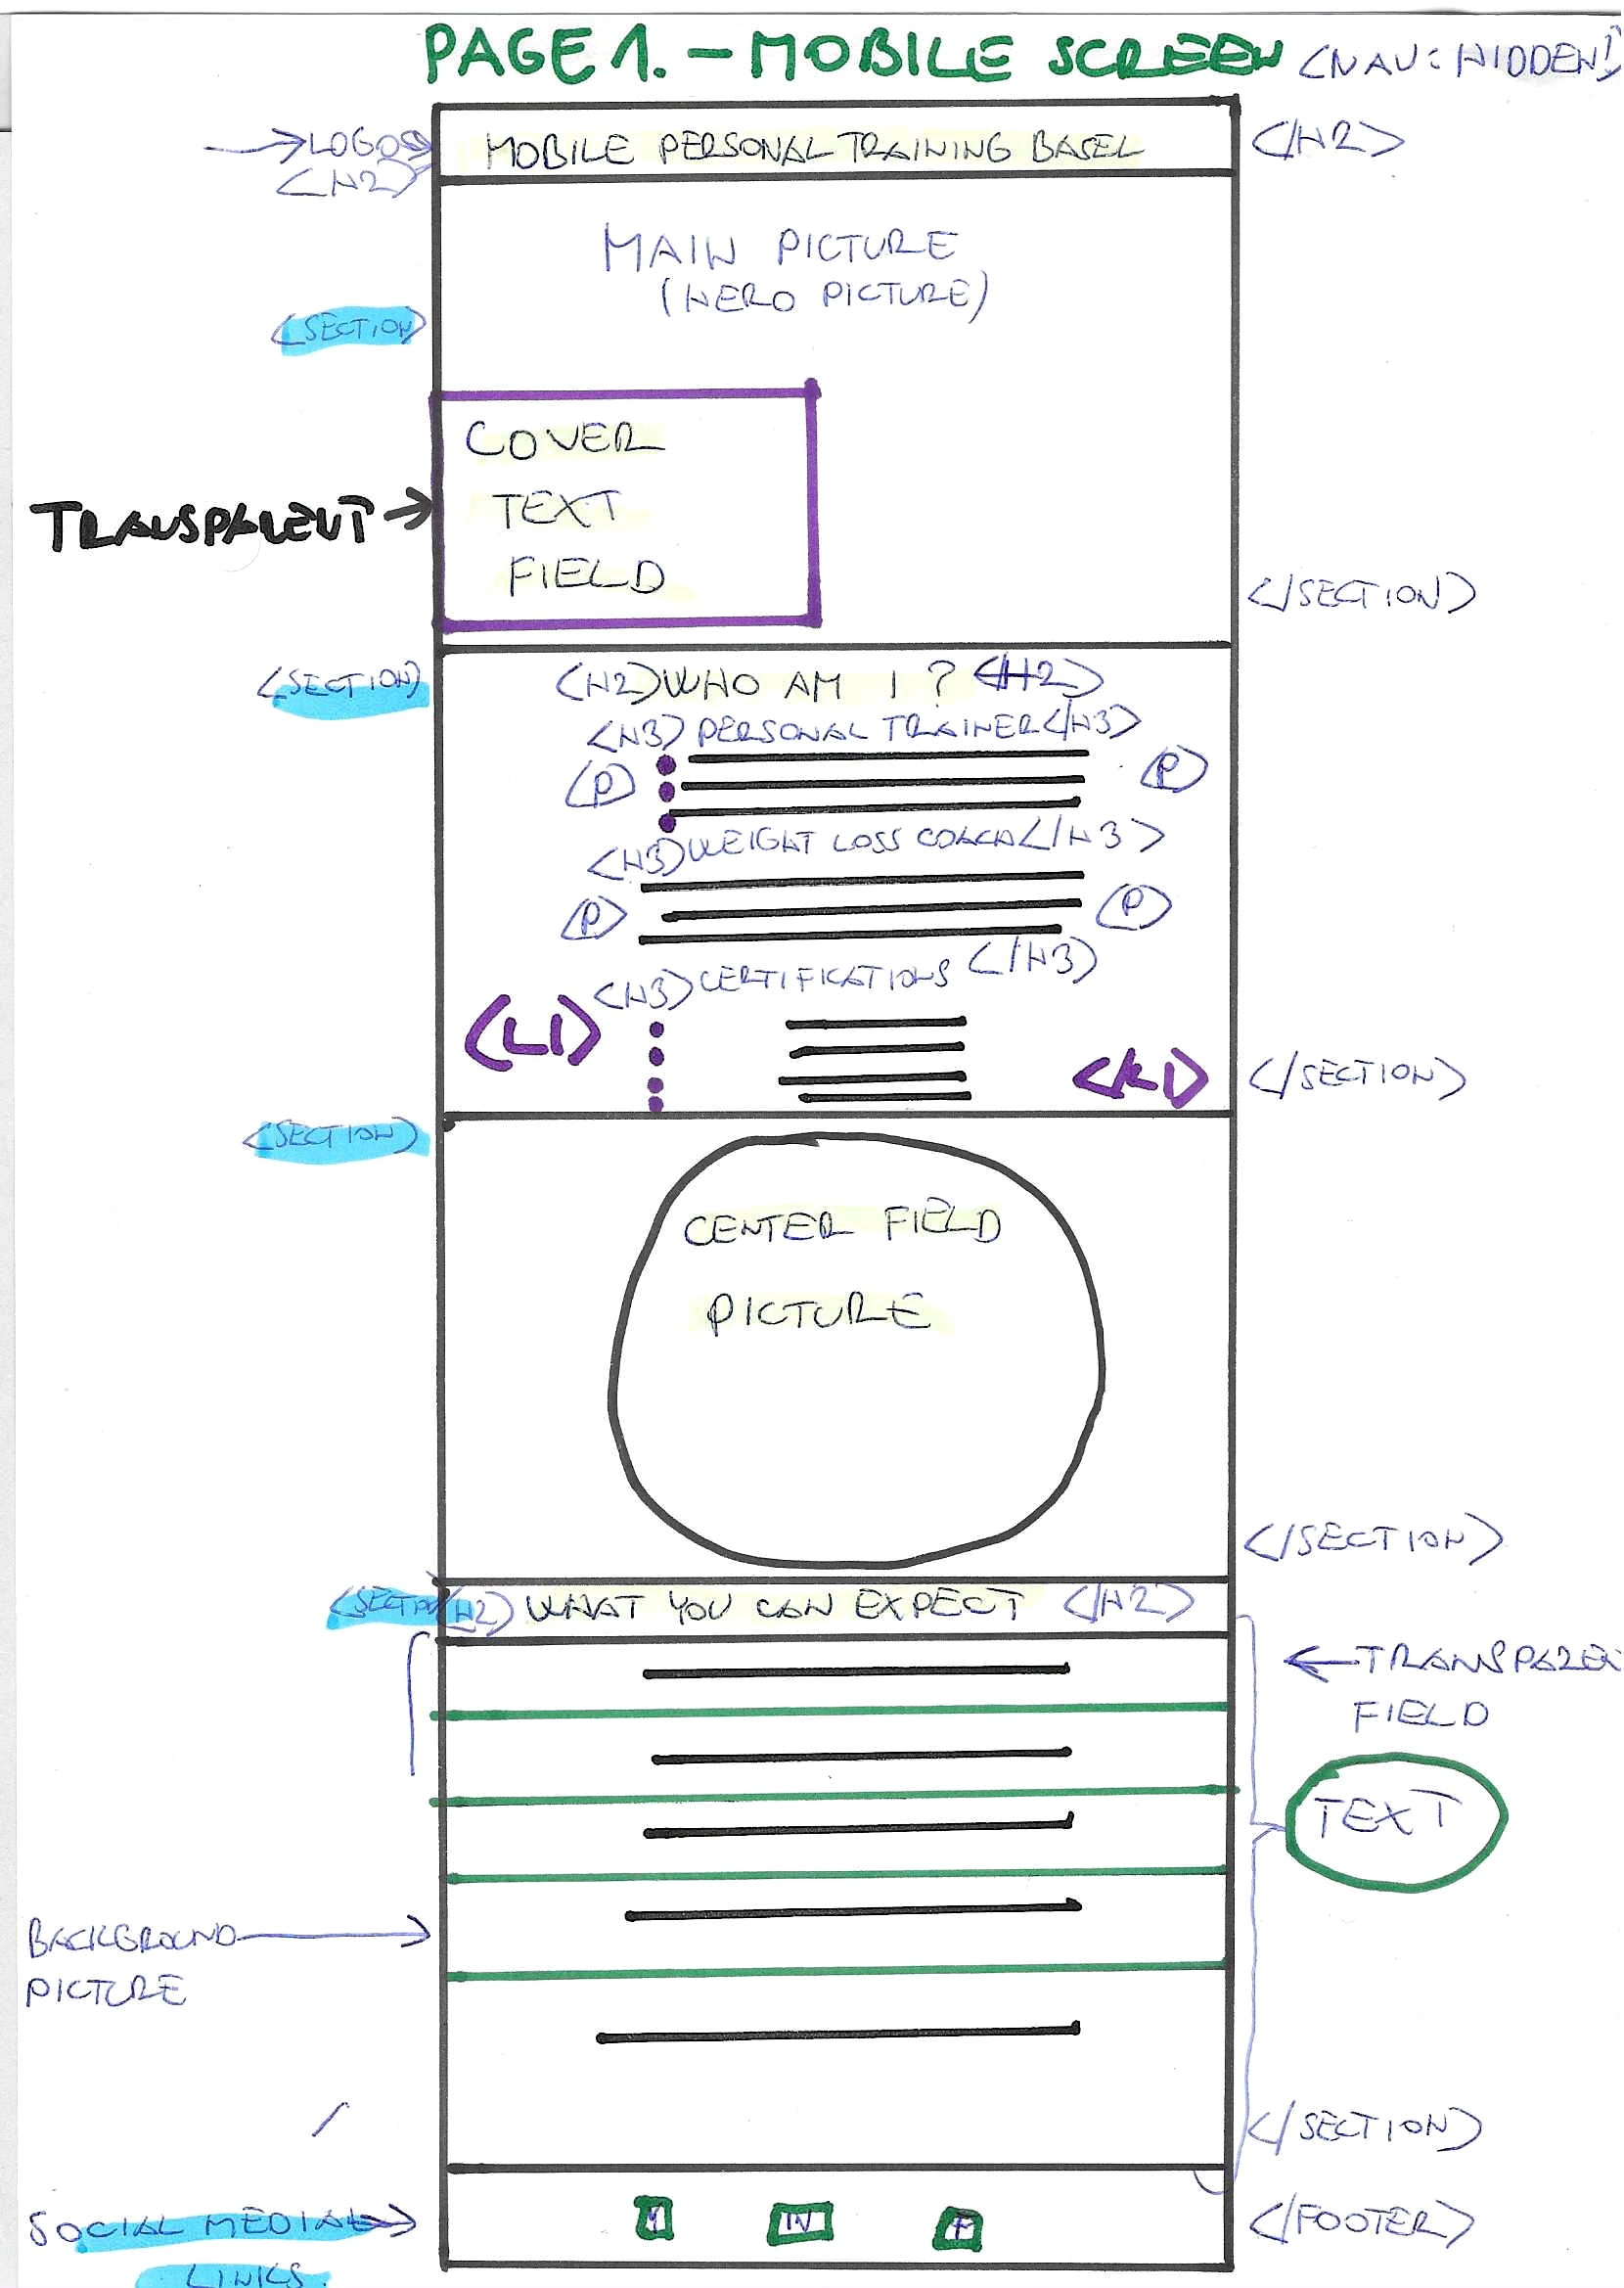 PAGE 1. - MOBILE SCREEN <NAV: HIDDEN!>
→ LOGO
<H2>
MOBILE PERSONAL TRAINING BASEL
</H2>
MAIN PICTURE
(HERO PICTURE)
<SECTION>
COVER
TEXT
FIELD
TRANSPARENT →
</SECTION>
<SECTION>
<H2> WHO AM I ? </H2>
<H3> PERSONAL TRAINER </H3>
<P> <P>
<H3> WEIGHT LOSS COACH </H3>
<P> <P>
<H3> CERTIFICATIONS </H3>
<LI>
</LI>
</SECTION>
<SECTION>
CENTER FIELD
PICTURE
</SECTION>
<SECTION <H2> WHAT YOU CAN EXPECT </H2>
← TRANSPAREN
FIELD
TEXT
BACKGROUND →
PICTURE
</SECTION>
SOCIAL MEDIA →
LINKS.
Y IN F
</FOOTER>